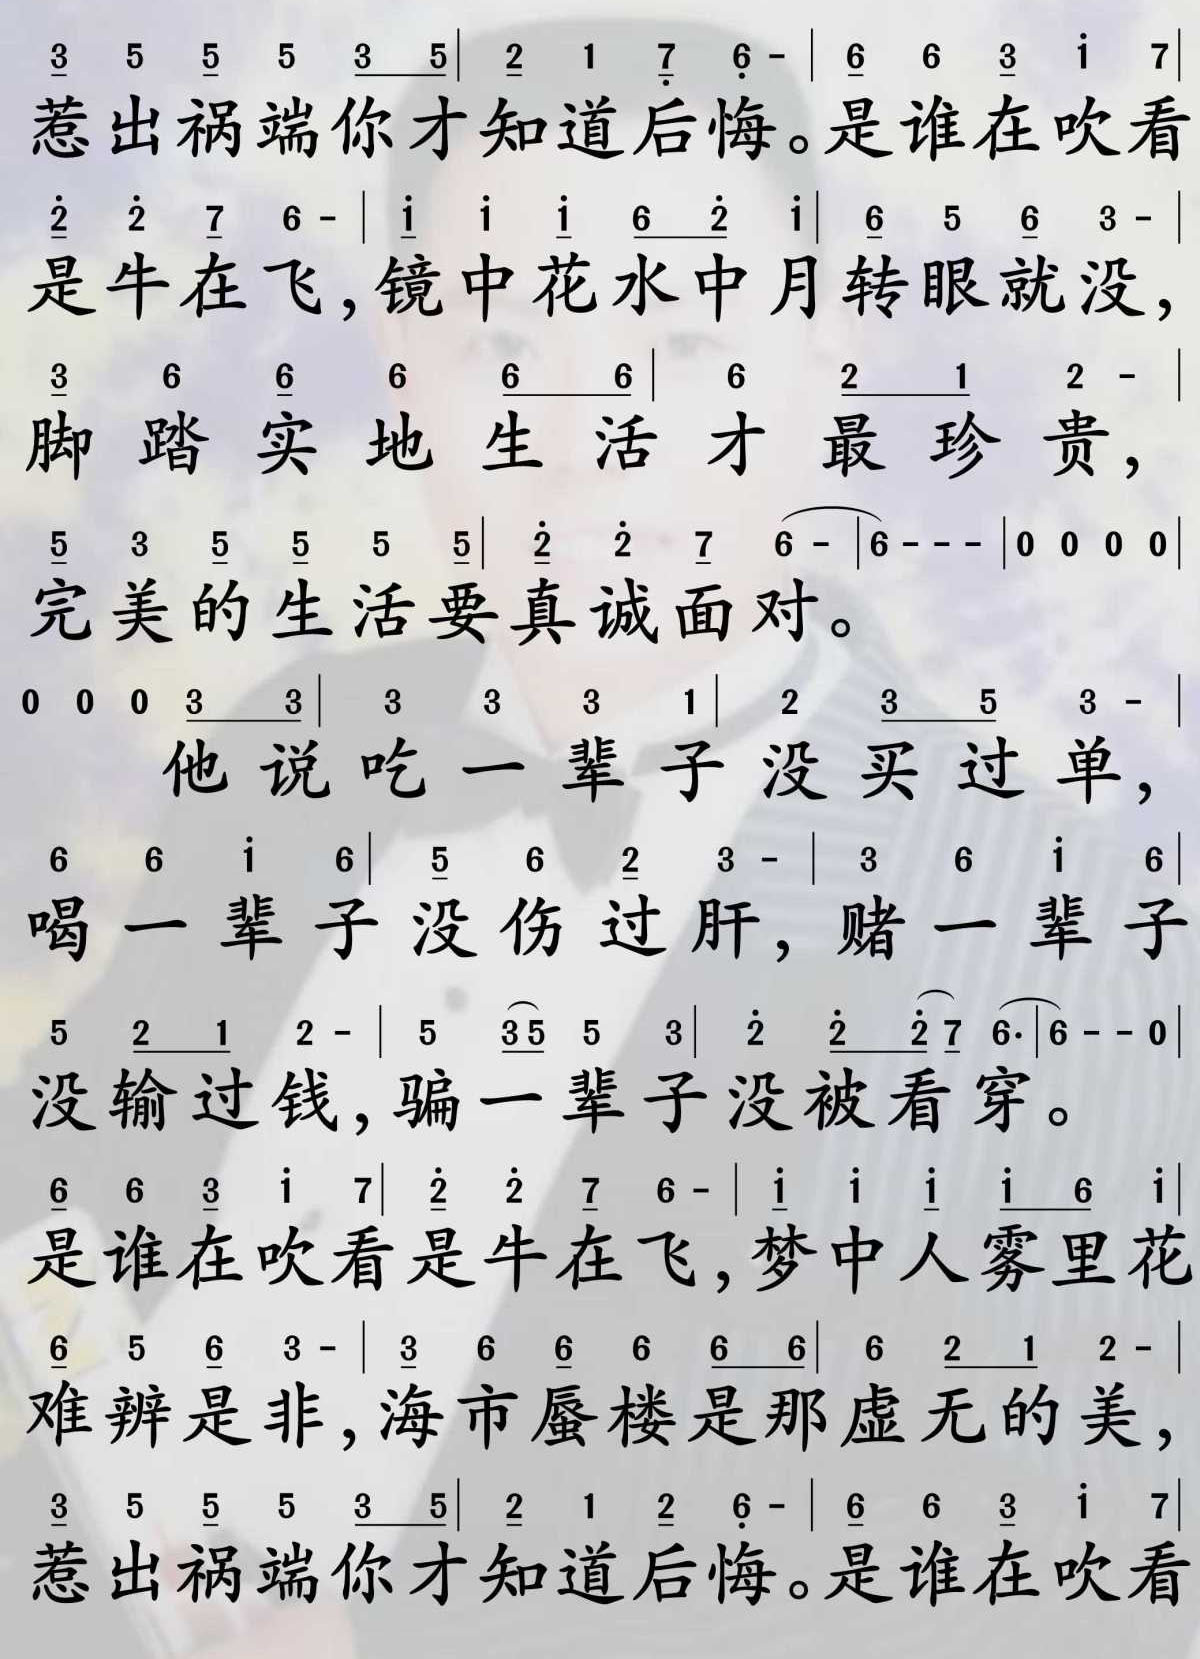 3 5 5 5 3 5 | 2 1 7̣ 6̣ - | 6 6 3 1̇ 7 |
惹出祸端你才知道后悔。是谁在吹看
2̇ 2̇ 7 6 - | 1̇ 1̇ 1̇ 6 2̇ 1̇ | 6 5 6 3 - |
是牛在飞,镜中花水中月转眼就没,
3 6 6 6 6 6 | 6 2 1 2 - |
脚踏实地生活才最珍贵,
5 3 5 5 5 5 | 2̇ 2̇ 7 6 - | 6 - - - | 0 0 0 0 |
完美的生活要真诚面对。
0 0 0 3 3 | 3 3 3 1 | 2 3 5 3 - |
他说吃一辈子没买过单,
6 6 1̇ 6 | 5 6 2 3 - | 3 6 1̇ 6 |
喝一辈子没伤过肝,赌一辈子
5 2 1 2 - | 5 3 5 5 3 | 2̇ 2̇ 2̇ 7 6· | 6 - - 0 |
没输过钱,骗一辈子没被看穿。
6 6 3 1̇ 7 | 2̇ 2̇ 7 6 - | 1̇ 1̇ 1̇ 1̇ 6 1̇ |
是谁在吹看是牛在飞,梦中人雾里花
6 5 6 3 - | 3 6 6 6 6 6 | 6 2 1 2 - |
难辨是非,海市蜃楼是那虚无的美,
3 5 5 5 3 5 | 2 1 2 6̣ - | 6 6 3 1̇ 7 |
惹出祸端你才知道后悔。是谁在吹看